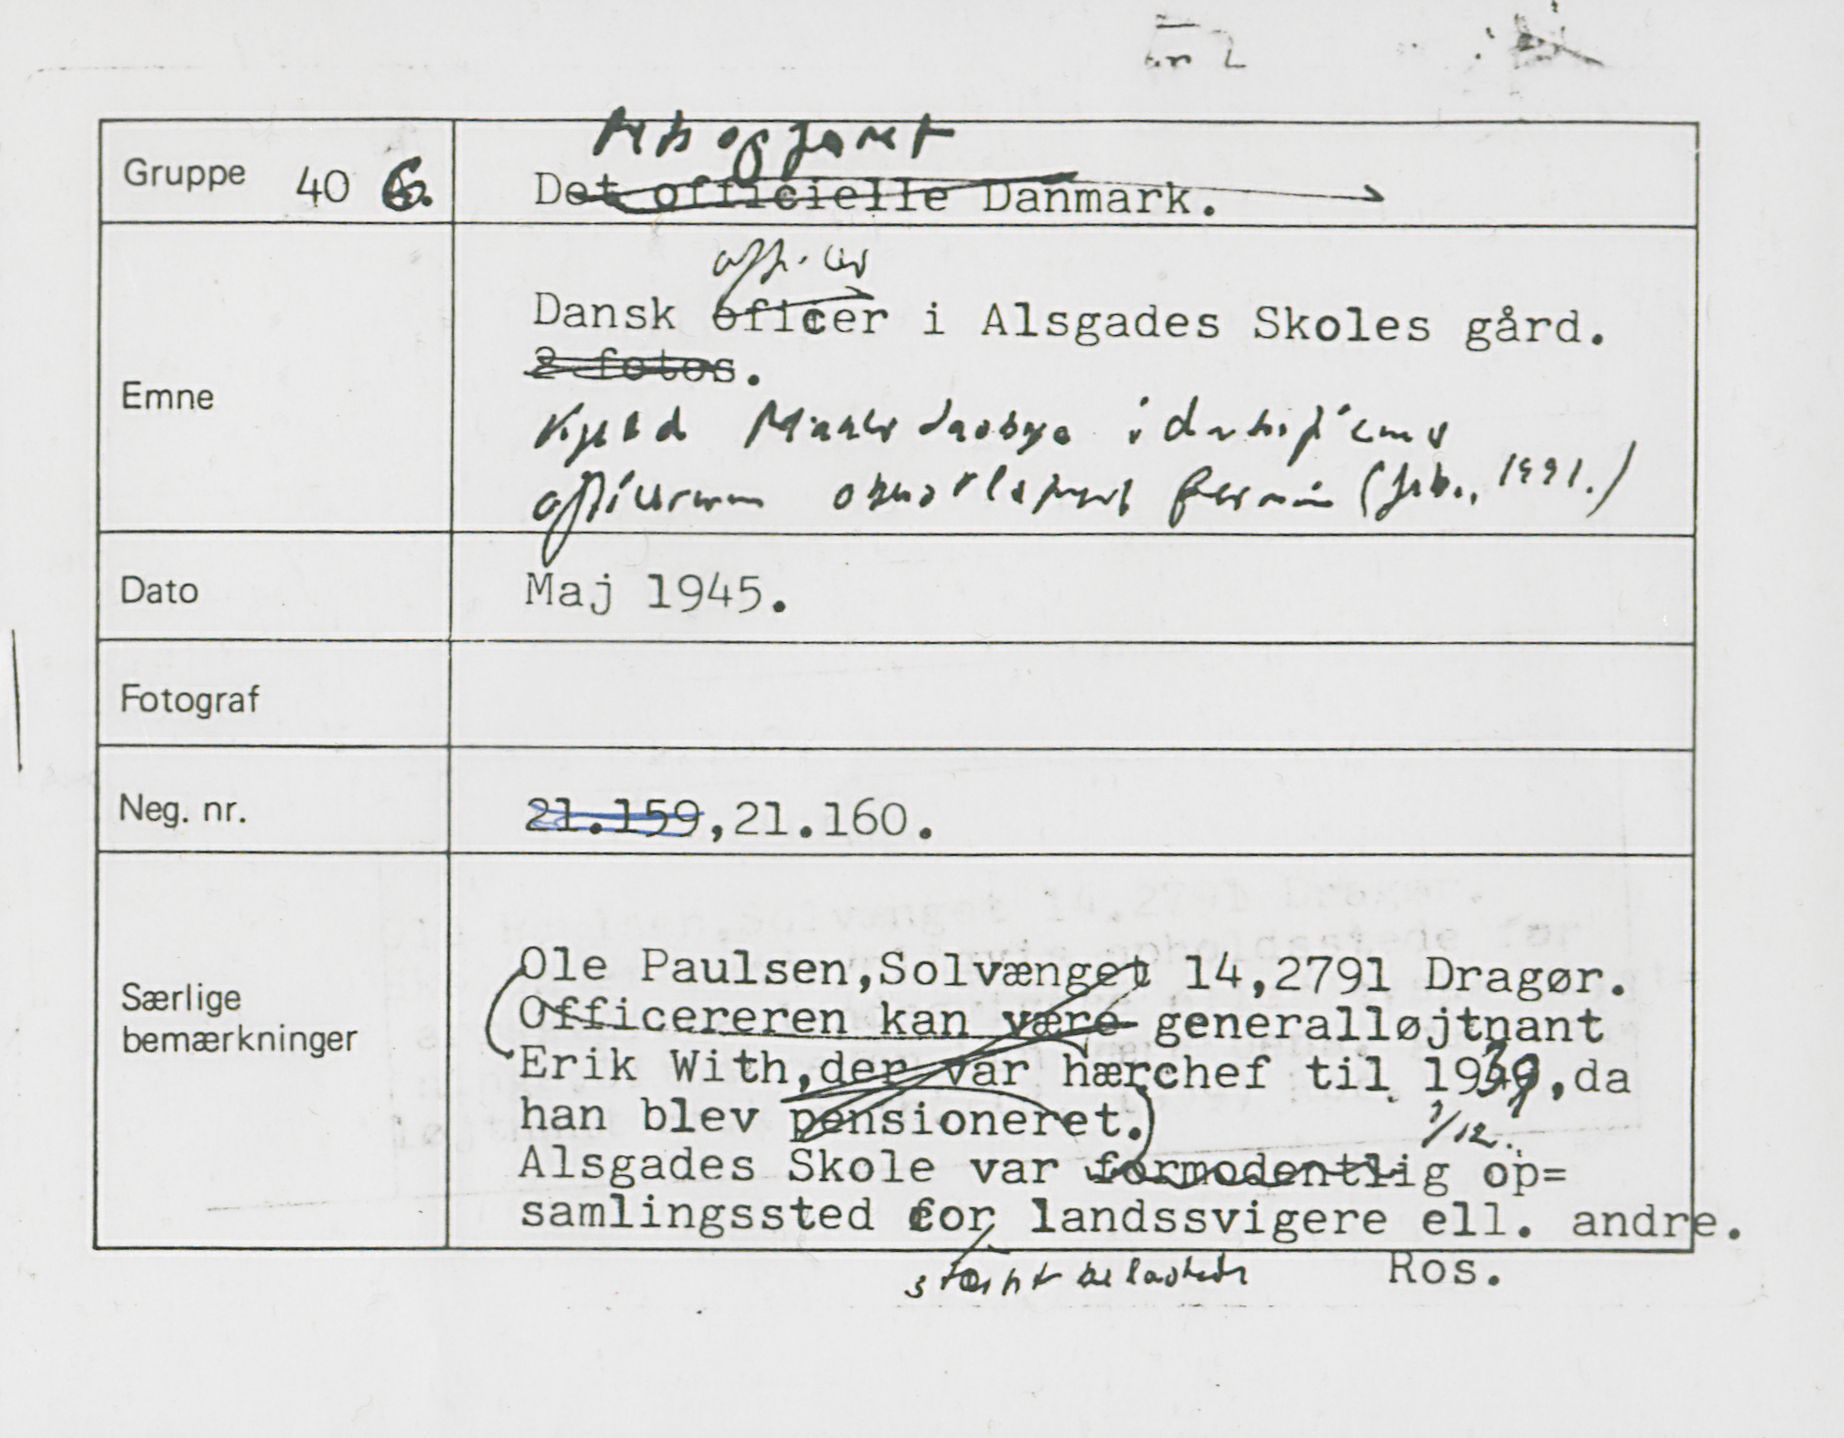 Gruppe 40 G.
Retsopgøret
Det officielle Danmark.
Emne
officer
Dansk oficer i Alsgades Skoles gård.
2 fotos.
identificerer
officeren (feb. 1991.)
Dato
Maj 1945.
Fotograf
Neg. nr.
21.159,21.160.
Særlige
bemærkninger
Ole Paulsen,Solvænget 14,2791 Dragør.
Officereren kan være generalløjtnant
Erik With,der var hærchef til 1939,da
han blev pensioneret.
1/12.
Alsgades Skole var formodentlig op=
samlingssted for landssvigere ell. andre.
stærkt belastede
Ros.